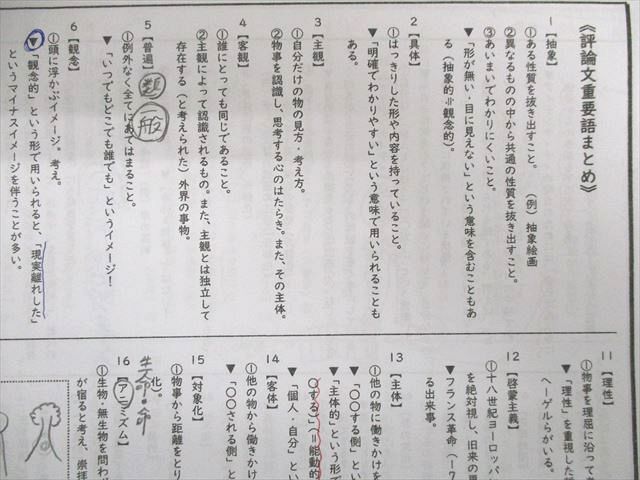 《評論文重要語まとめ》
1【抽象】
①ある性質を抜き出すこと。　（例）抽象絵画
②異なるものの中から共通の性質を抜き出すこと。
③あいまいでわかりにくいこと。
▼「形が無い・目に見えない」という意味を含むこともあ
る（抽象的≒観念的）。
2【具体】
①はっきりした形や内容を持っていること。
▼「明確でわかりやすい」という意味で用いられることも
ある。
3【主観】
①自分だけの物の見方・考え方。
②物事を認識し、思考する心のはたらき。また、その主体。
4【客観】
①誰にとっても同じであること。
②主観によって認識されるもの。また、主観とは独立して
存在する（と考えられた）外界の事物。
5【普遍】
①例外なく全てにあてはまること。
▼「いつでもどこでも誰でも」というイメージ！
6【観念】
①頭に浮かぶイメージ。考え。
▼「観念的」という形で用いられると、「現実離れした」
というマイナスイメージを伴うことが多い。
11【理性】
①物事を理屈に沿って考
▼「理性」を重視した
ヘーゲルらがいる。
12【啓蒙主義】
①十八世紀ヨーロッパ
を絶対視し、旧来の
▼フランス革命（17
る出来事。
13【主体】
①他の物に働きかけを
▼「〇〇する側」とい
▼「主体的」という形で
〇する」（＝能動的
▼「個人・自分」とい
14【客体】
①他の物から働きかけ
▼「〇〇される側」と
15【対象化】
①物事から距離をとり
化。
生命・命
16【アニミズム】
①生物・無生物を問わず
が宿ると考え、崇拝